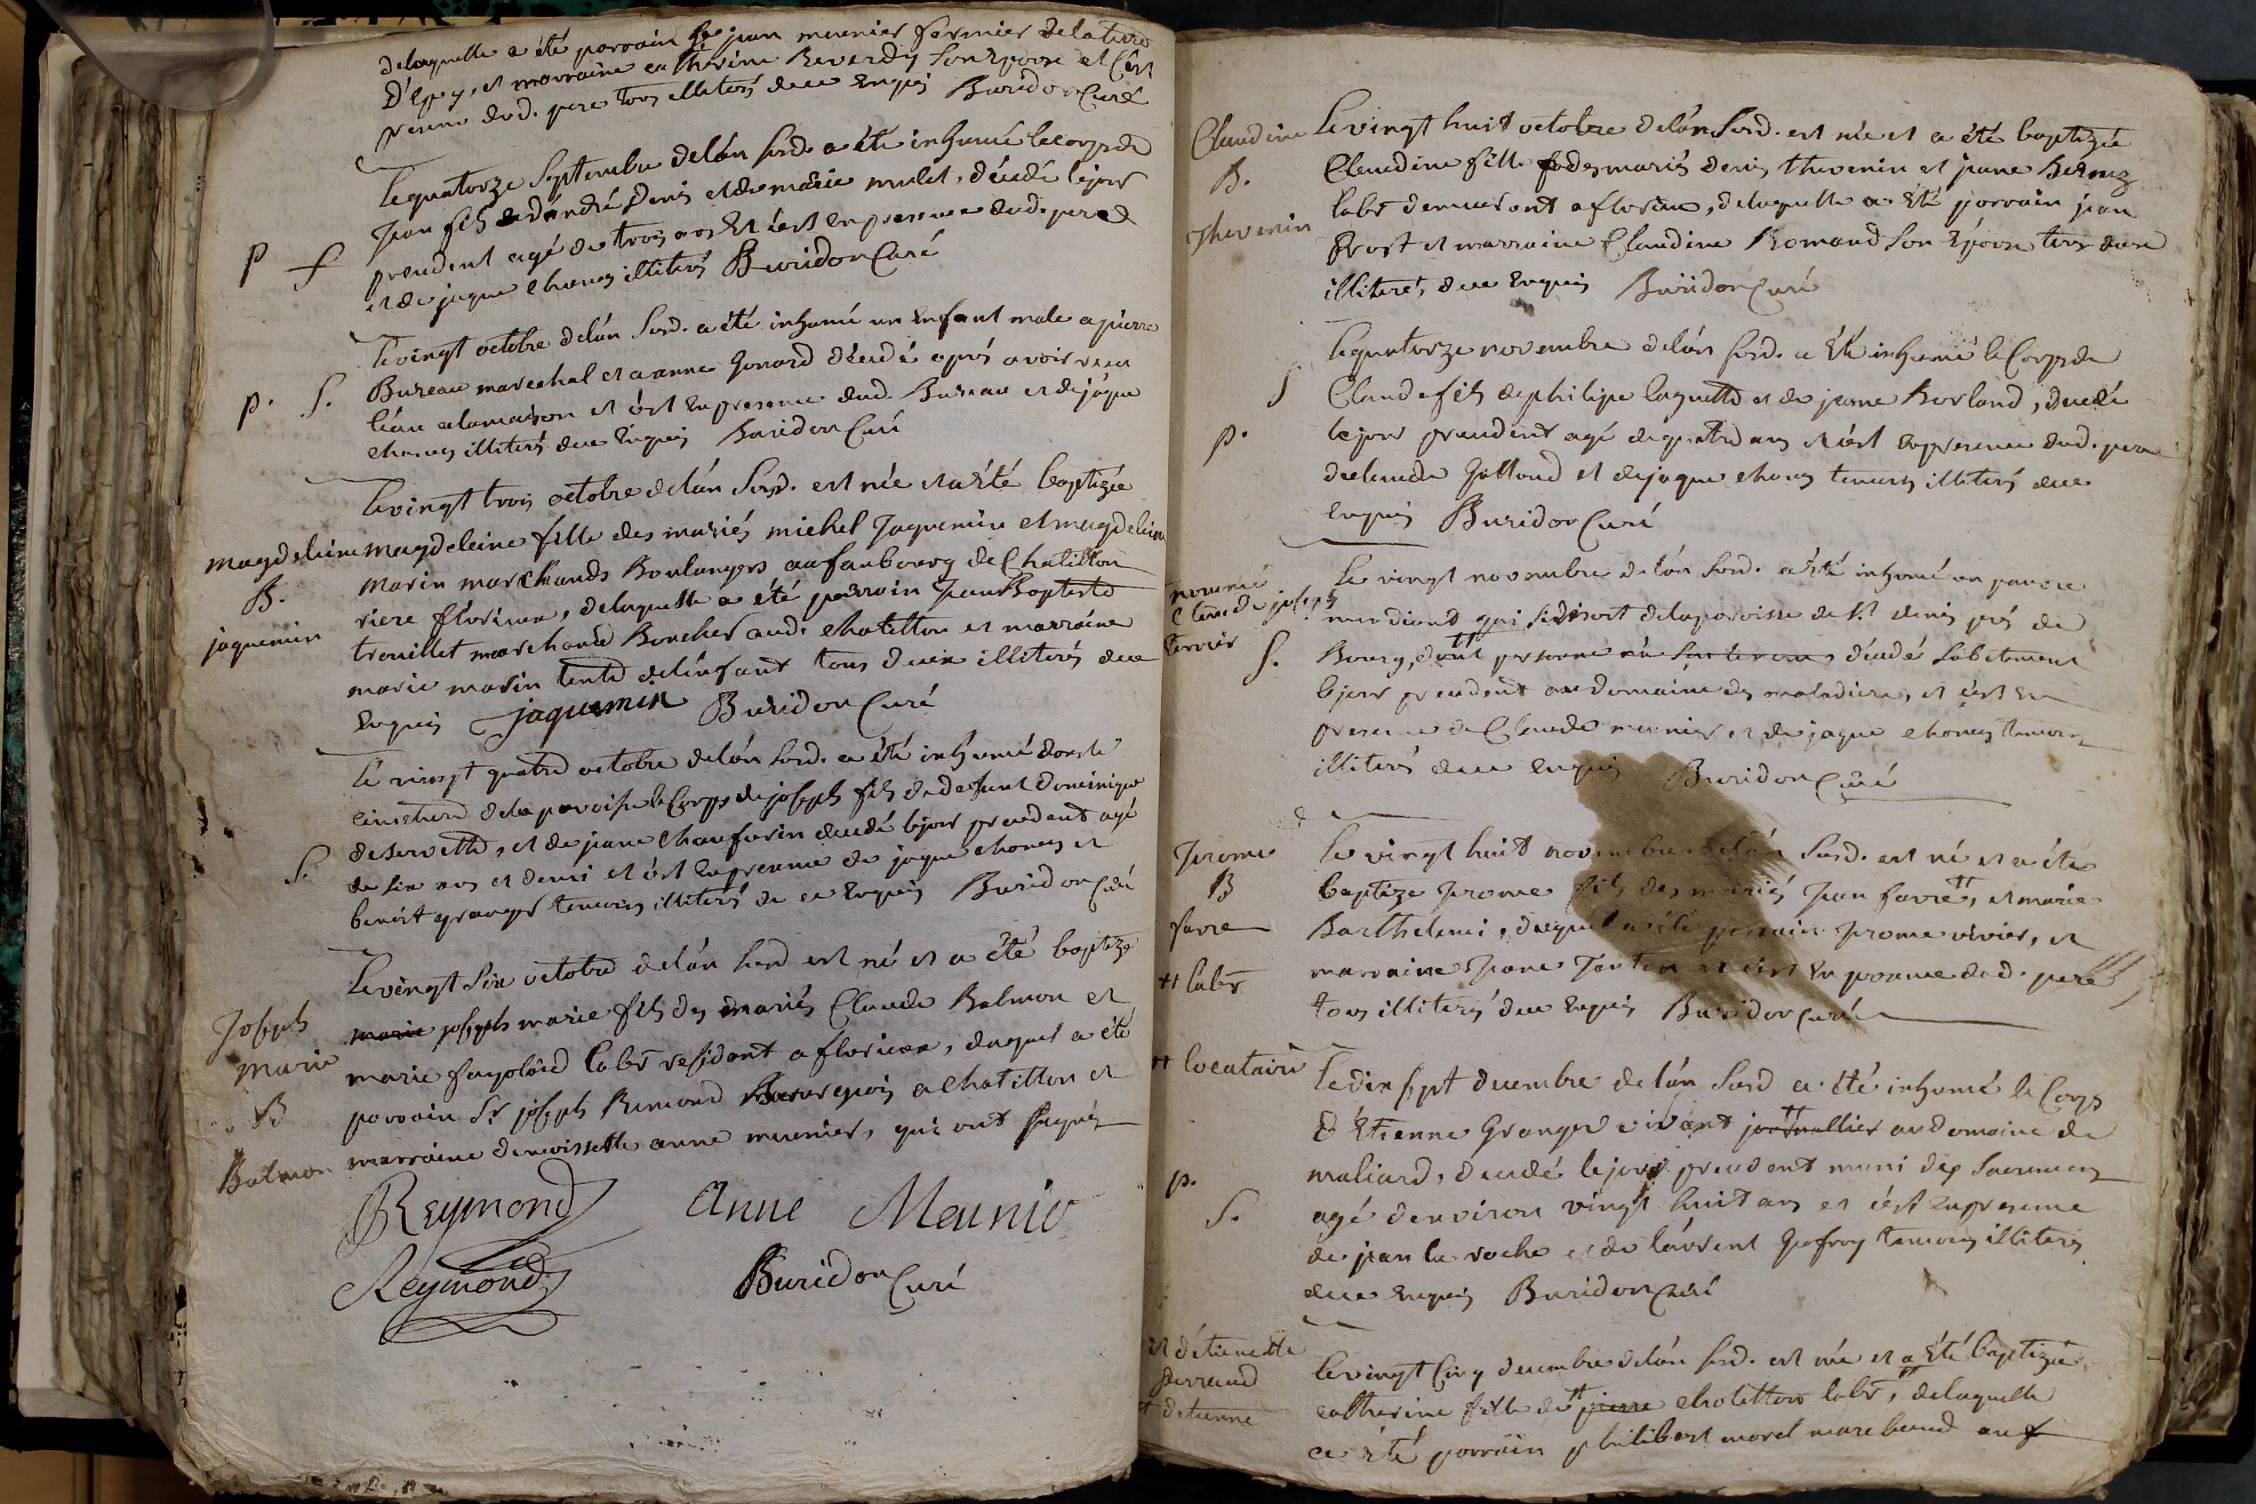 delaquelle a été parrain Sr jean meunier fermier delaterre
D'Epey, et marraine catherine Reverdy son Epouse et c'est
presence dud. pere tous illiterés de ce Enquis Buridon Curé
Le quatorze Septembre de l'án susd. a été inhumé le corps de
p f
Jean fils d'ándré Denis et de marie mulet, décedé le jour
precedent agé de trois ans Et c'est en presence dud. pere
et de jaque chanas illiterés Buridon Curé
Le vingt octobre delán Susd. a été inhumé un Enfant male a pierre
p. S.
Bureau marechal et a anne Gonard décedé aprés avoir reçu
l'eau a la maison et c'est En presence dud. Bureau et de jáque
chanas illiterés de ce Enquis Buridon Curé
Le vingt trois octobre delán Susd. est née et a été baptizée
magdeleine
B.
jaquemin
magdeleine fille des mariés michel Jaquemin et magdeleine
marin marchands Boulangers au faubourg de Chatillon
riere fleurieux, delaquelle a été parrain Jean Baptiste
trouillet marchand Boucher aud. chatillon et marraine
marie marin tente de l'enfant tous deux illiterés de ce
Enquis jaquemin Buridon Curé
Le vingt quatre octobre delán Susd. a été inhumé dans le
cimetiere de la paroisse le Corps de joseph fils de defunt dominique
S.
deservette, et de jeane Chanfurin décedé le jour precedent agé
de six ans et demi et c'est En presence de jaque chanas et
benoit granger temoins illiterés de ce Enquis Buridon Curé
Le vingt Six octobre delán susd est né et a été baptizé
Joseph
Marie
B
Balmon
marie joseph marie fils des mariés Claude Balmon et
marie fayolaid labr residant a fleurieux, duquel a été
parrain Sr joseph Remond Bourgeois a Chatillon et
marraine demoisselle anne meunier, qui ont signés
Reymond Anne Meunie
Reymond Buridon Curé
Claudine
B.
thevenin
Le vingt huit octobre delán Susd. est née et a été baptizée
Claudine fille des mariés denis thevenin et jeane
labr demeurant a fleurieux, delaquelle a été parrain jean
Prost et marraine Claudine Romand son Epouse tous deux
illiterés, de ce Enquis Buridon Curé
Le quatorze novembre delán susd. a Eté inhumé le Corps de
S
p.
Claude fils de philipe laguette et de jeane Borland, decedé
le jour precedent agé de quatre ans et c'est En presence dud. pere
de claude Galland et de jaque chanas temoins illiterés de ce
Enquis Buridon Curé
nommé
Claude joseph
terrier S.
Le vingt novembre delán Susd. a été inhumé un pauvre
mendiant qui se disoit de la paroisse de St denis prés de
Bourg, dont personne décedé subitement
le jour precedent au domaine des maladieres, et c'est En
presence de Claude meunier et de jaque chanas temoins
illiterés de ce Enquis Buridon Curé
Jerome
B
favre
tt labr
Le vingt huit novembre delán Susd. est né et a été
baptizé Jerome fils des mariés Jean favre tt, et marie
Barthelemi, duquel a été parrain Jerome vivier, et
marraine Jeane et c'est En presence dud. pere
tous illiterés de ce Enquis Buridon Curé
tt locatairé
Le dix sept decembre delán Susd a été inhumé le Corps
d'Etienne Granger vivant journallier tt au domaine de
p.
S.
maliard, decedé le jour precedent muni des Sacremens
agé d'environ vingt huit ans et c'est En presence
de jean la roche et de láurent Gofroy temoins illiterés
de ce Enquis Buridon Curé
et d'étiennette
perraud
tt detienne
Le vingt Cinq decembre delán Susd. est née et a Eté baptizée
catherine fille de tt pierre chatillon labr, tt delaquelle
a été parrain philibert morel marchand au f